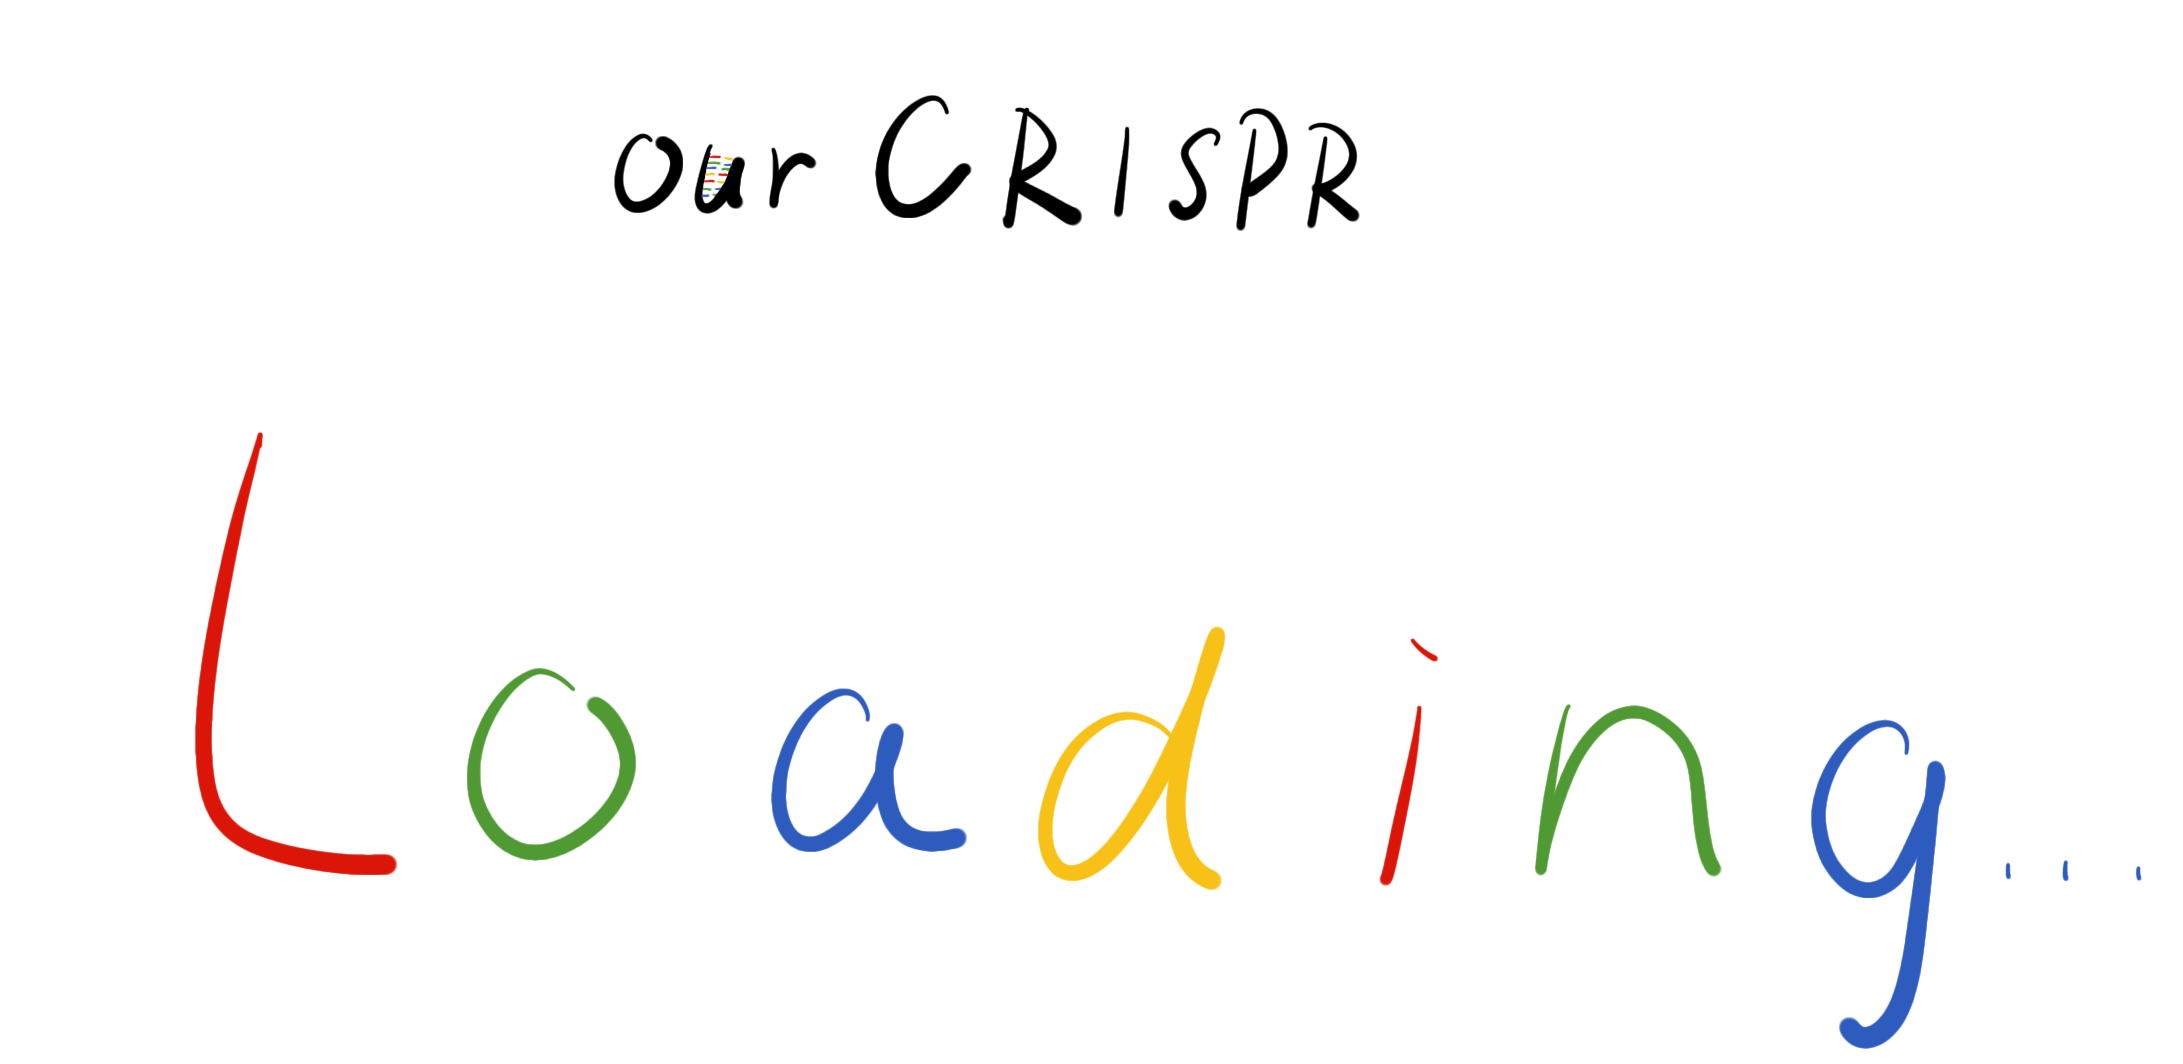 our CRISPR
Loading...